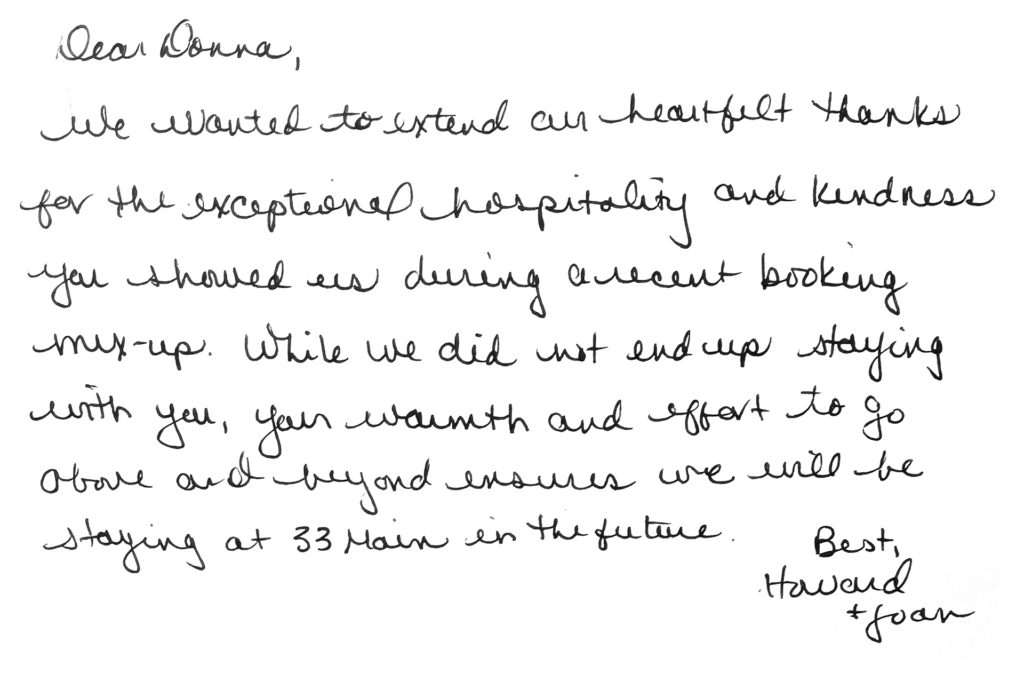 Dear Donna,
We wanted to extend our heartfelt thanks
for the exceptional hospitality and kindness
you showed us during a recent booking
mix-up. While we did not end up staying
with you, your warmth and effort to go
above and beyond ensures we will be
staying at 33 Main in the future.
Best,
Howard
+ Joan